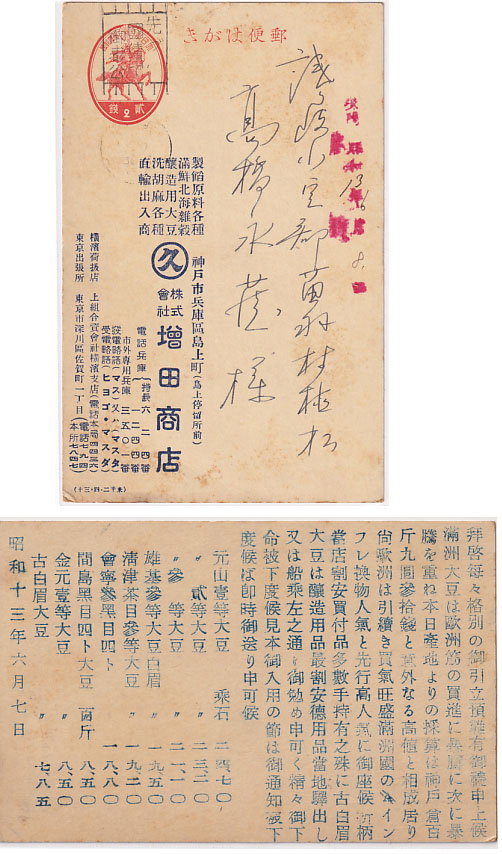 郵便はがき
貳錢
2
讃岐小豆郡苗羽村植松
高橋永蔵様
製餡原料各種
滿鮮北海雜穀
釀造用大豆
洗胡麻各種
直輸出入商
神戶市兵庫區島上町(島上停留所前)
久
株式會社 增田商店
電話兵庫(特長六二一四番
一二四四番
市外専用兵庫三五〇一番
發電略語(マス)又ハ(マスタ)
受電略語(ヒヨゴ・マスダ)
橫濱荷扱店 上組合資會社橫濱支店(電話本局四四三六)
東京出張所 東京市深川區佐賀町一丁目(本所七八四七)
拜啓每々格別の御引立慎難有御禮申上候
滿洲大豆は歐洲筋の買進に暴騰に次に暴
騰を重ね本日產地よりの採算は神戶倉百
斤九圓參拾錢と意外なる高値と相成居り
尙歐洲は引續き買氣旺盛滿洲國の〆イン
フレ換物人氣と先行高人氣に御座候折柄
當店割安買付品多數手持有之殊に古白眉
大豆は釀造用品最割安德用品當地驛出し
又は船乘左之通り御勉め申可く精々御下
命被下度候見本御入用の節は御通知被下
度候ば卽時御送り申可候
元山壹等大豆 乘石 二四、七〇
〃 貳等大豆 〃 二三、二〇
〃 參等大豆 〃 二一、一〇
雄基參等大豆白眉 〃 一九、五〇
淸津茶目參等大豆 〃 一九、二〇
會寧熟黑目四ト 〃 一八、八〇
間島黑目四ト大豆 百斤 八、五〇
金元壹等大豆 〃 八、五〇
古白眉大豆 〃 七、八五
昭和十三年六月七日